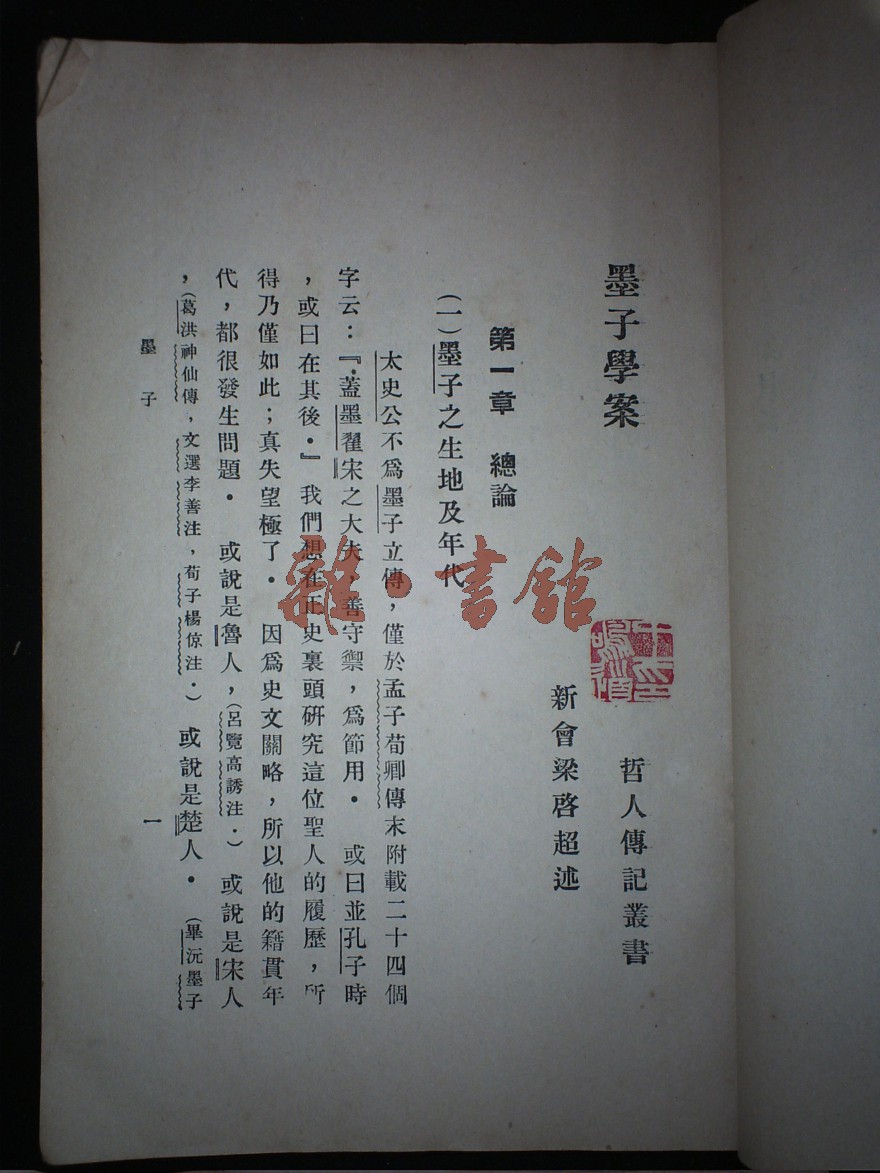 墨子學案
哲人傳記叢書
新會梁啓超述
第一章　總論
(一)墨子之生地及年代
太史公不爲墨子立傳，僅於孟子荀卿傳末附載二十四個
字云：『蓋墨翟宋之大夫，善守禦，爲節用． 或曰並孔子時
，或曰在其後．』我們想在正史裏頭研究這位聖人的履歷，所
得乃僅如此；真失望極了． 因爲史文闕略，所以他的籍貫年
代，都很發生問題． 或說是魯人，(呂覽高誘注．) 或說是宋人
，(葛洪神仙傳，文選李善注，荀子楊倞注．) 或說是楚人． (畢沅墨子
墨子
一
雜·書館